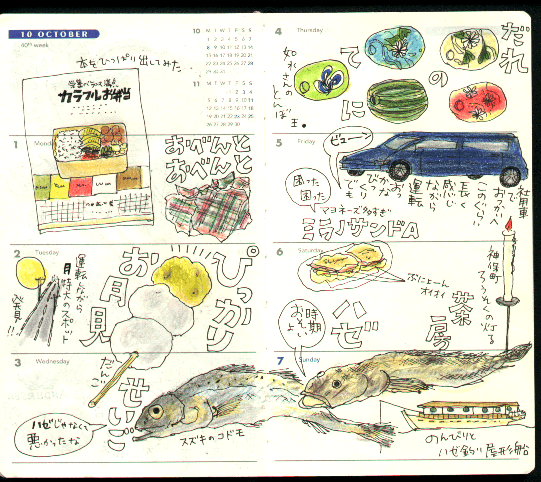 10 OCTOBER
40th week
本をひっぱり出してみた。
栄養バランス満点
カラフルお弁当
10
M T W T F S S
1 2 3 4 5 6 7
8 9 10 11 12 13 14
15 16 17 18 19 20 21
22 23 24 25 26 27 28
29 30 31
11
M T W T F S S
1 2 3 4
5 6 7 8 9 10 11
12 13 14 15 16 17 18
19 20 21 22 23 24 25
26 27 28 29 30
1 Monday
おべんと
おべんと
2 Tuesday
運転しながら
月特大のスポット
発見!!
ぴっかり
お月見
だんご
3 Wednesday
せいご
ハゼじゃなくて
悪かったな
スズキのコドモ
4 Thursday
だれ
の
てに
如れさんのとんぼ玉。
5 Friday
ビューン
困った
困った
社用車で
おつかいへ
このぐらい
長く感じ
ながら
運転
おっかなびっくりでも
マヨネーズ多すぎ
ミラノサンドA
6 Saturday
ぷにょーん
オイオイ
神保町
ろうそくの灯る
茶房
ハゼ
時期
おそいよ
7 Sunday
のんびりと
ハゼ釣り屋形船